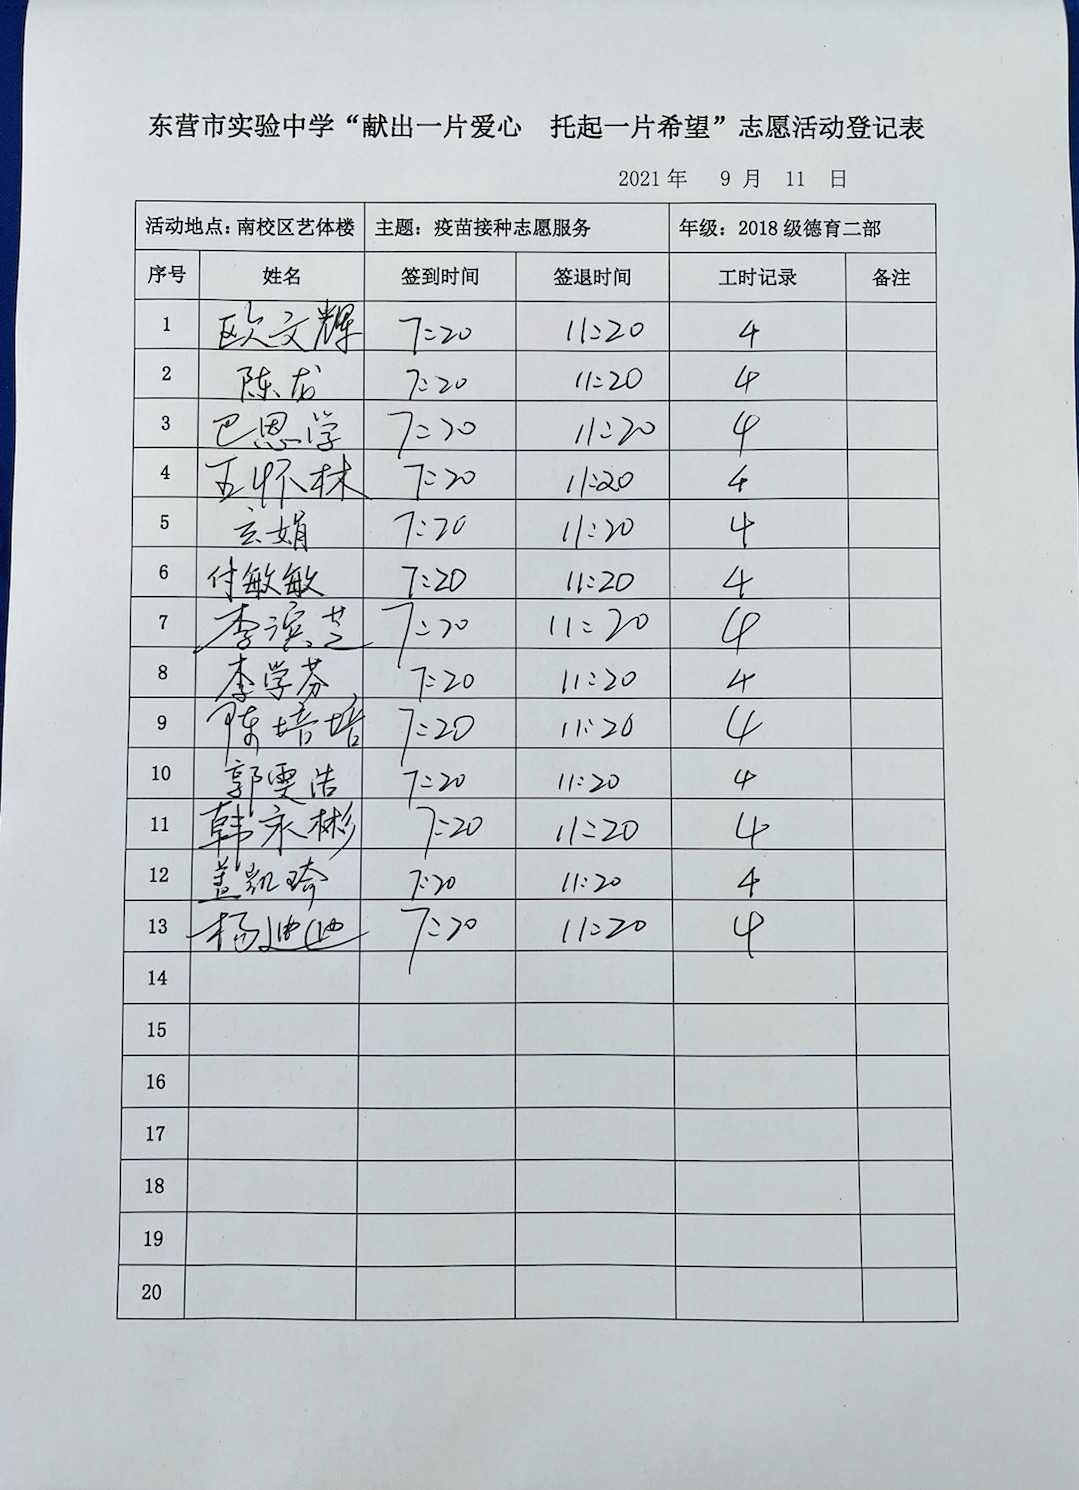 东营市实验中学“献出一片爱心 托起一片希望”志愿活动登记表
2021年 9 月 11 日
活动地点：南校区艺体楼 主题：疫苗接种志愿服务 年级：2018 级德育二部
序号 姓名 签到时间 签退时间 工时记录 备注
1 欧文辉 7:20 11:20 4
2 陈龙 7:20 11:20 4
3 巴恩学 7:20 11:20 4
4 王怀林 7:20 11:20 4
5 玄娟 7:20 11:20 4
6 付敏敏 7:20 11:20 4
7 李滨芝 7:20 11:20 4
8 李学芬 7:20 11:20 4
9 陈培培 7:20 11:20 4
10 郭雯浩 7:20 11:20 4
11 韩永彬 7:20 11:20 4
12 盖凯琦 7:20 11:20 4
13 杨迪迪 7:20 11:20 4
14
15
16
17
18
19
20